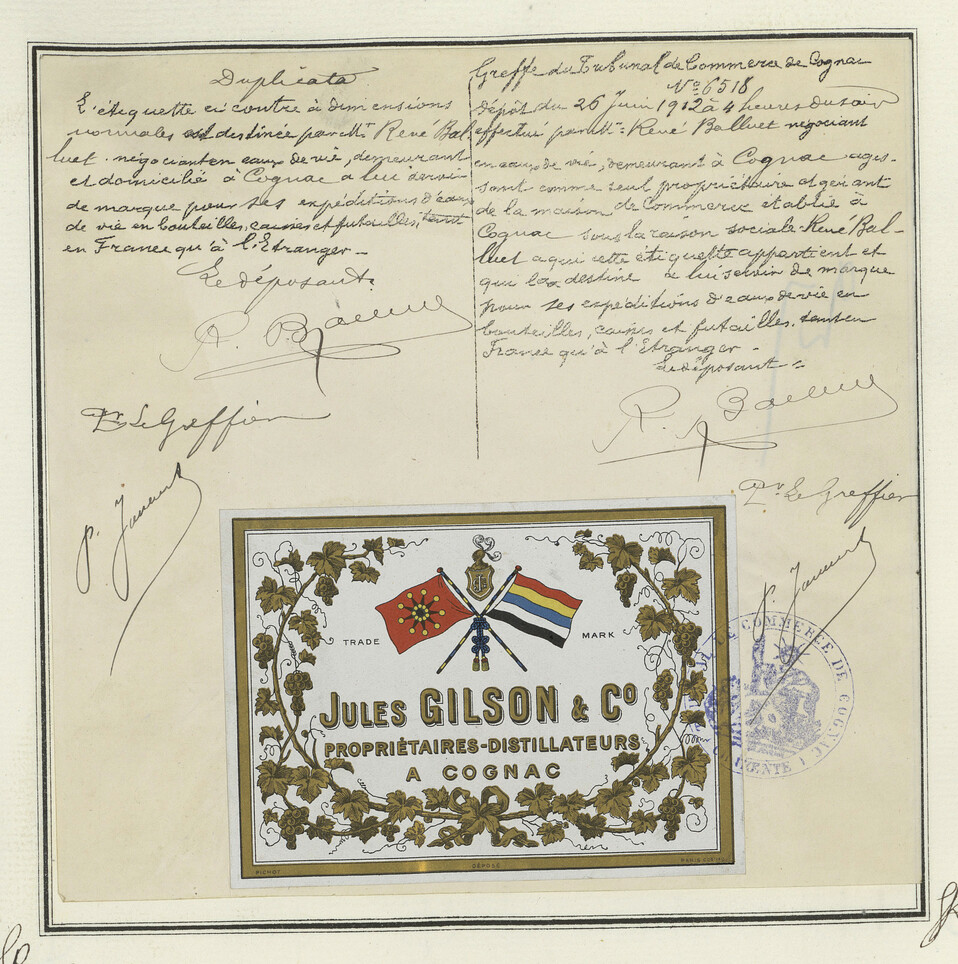 Duplicata
L'étiquette ci contre à dimensions
normales est destinée par Mr René Bal-
luet négociant en eaux de vie, demeurant
et domicilié à Cognac a lui servir
de marque pour ses expéditions d'eaux
de vie en bouteilles, caisses et futailles, tant
en France qu'à l'Etranger -
Le déposant.
Pr Le Greffier
Greffe du Tribunal de Commerce de Cognac
No 6518
Dépôt du 26 Juin 1912 à 4 heures du soir
effectué par Mr René Balluet négociant
en eaux de vie, demeurant à Cognac agis-
sant comme seul propriétaire et gérant
de la maison de Commerce établie à
Cognac sous la raison sociale René Bal-
luet a qui cette étiquette appartient et
qui la destine a lui servir de marque
pour ses expéditions d'eaux de vie en
bouteilles, caisses et futailles, tant en
France qu'à l'Etranger -
Le déposant =
Pr Le Greffier
TRADE MARK
JULES GILSON & Co
PROPRIÉTAIRES-DISTILLATEURS
A COGNAC
PICHOT DÉPOSÉ PARIS
DE COMMERCE DE COGNAC